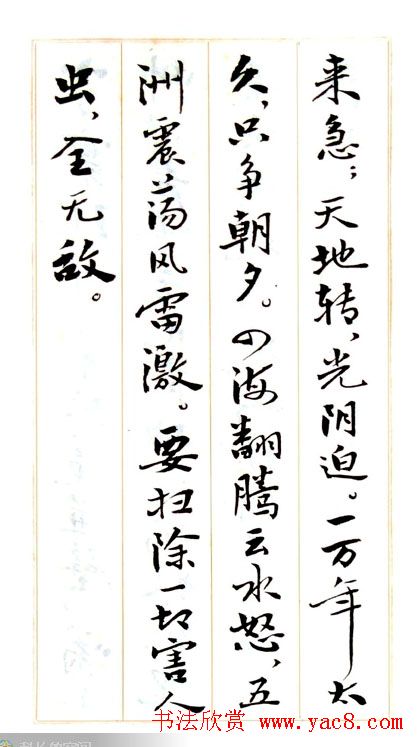 来急；天地转，光阴迫。一万年太
久，只争朝夕。四海翻腾云水怒，五
洲震荡风雷激。要扫除一切害人
虫，全无敌。
书法欣赏 www.yac8.com